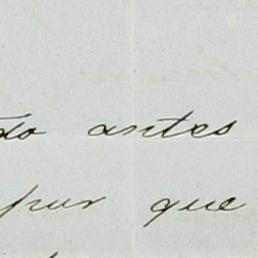 do antes
por que